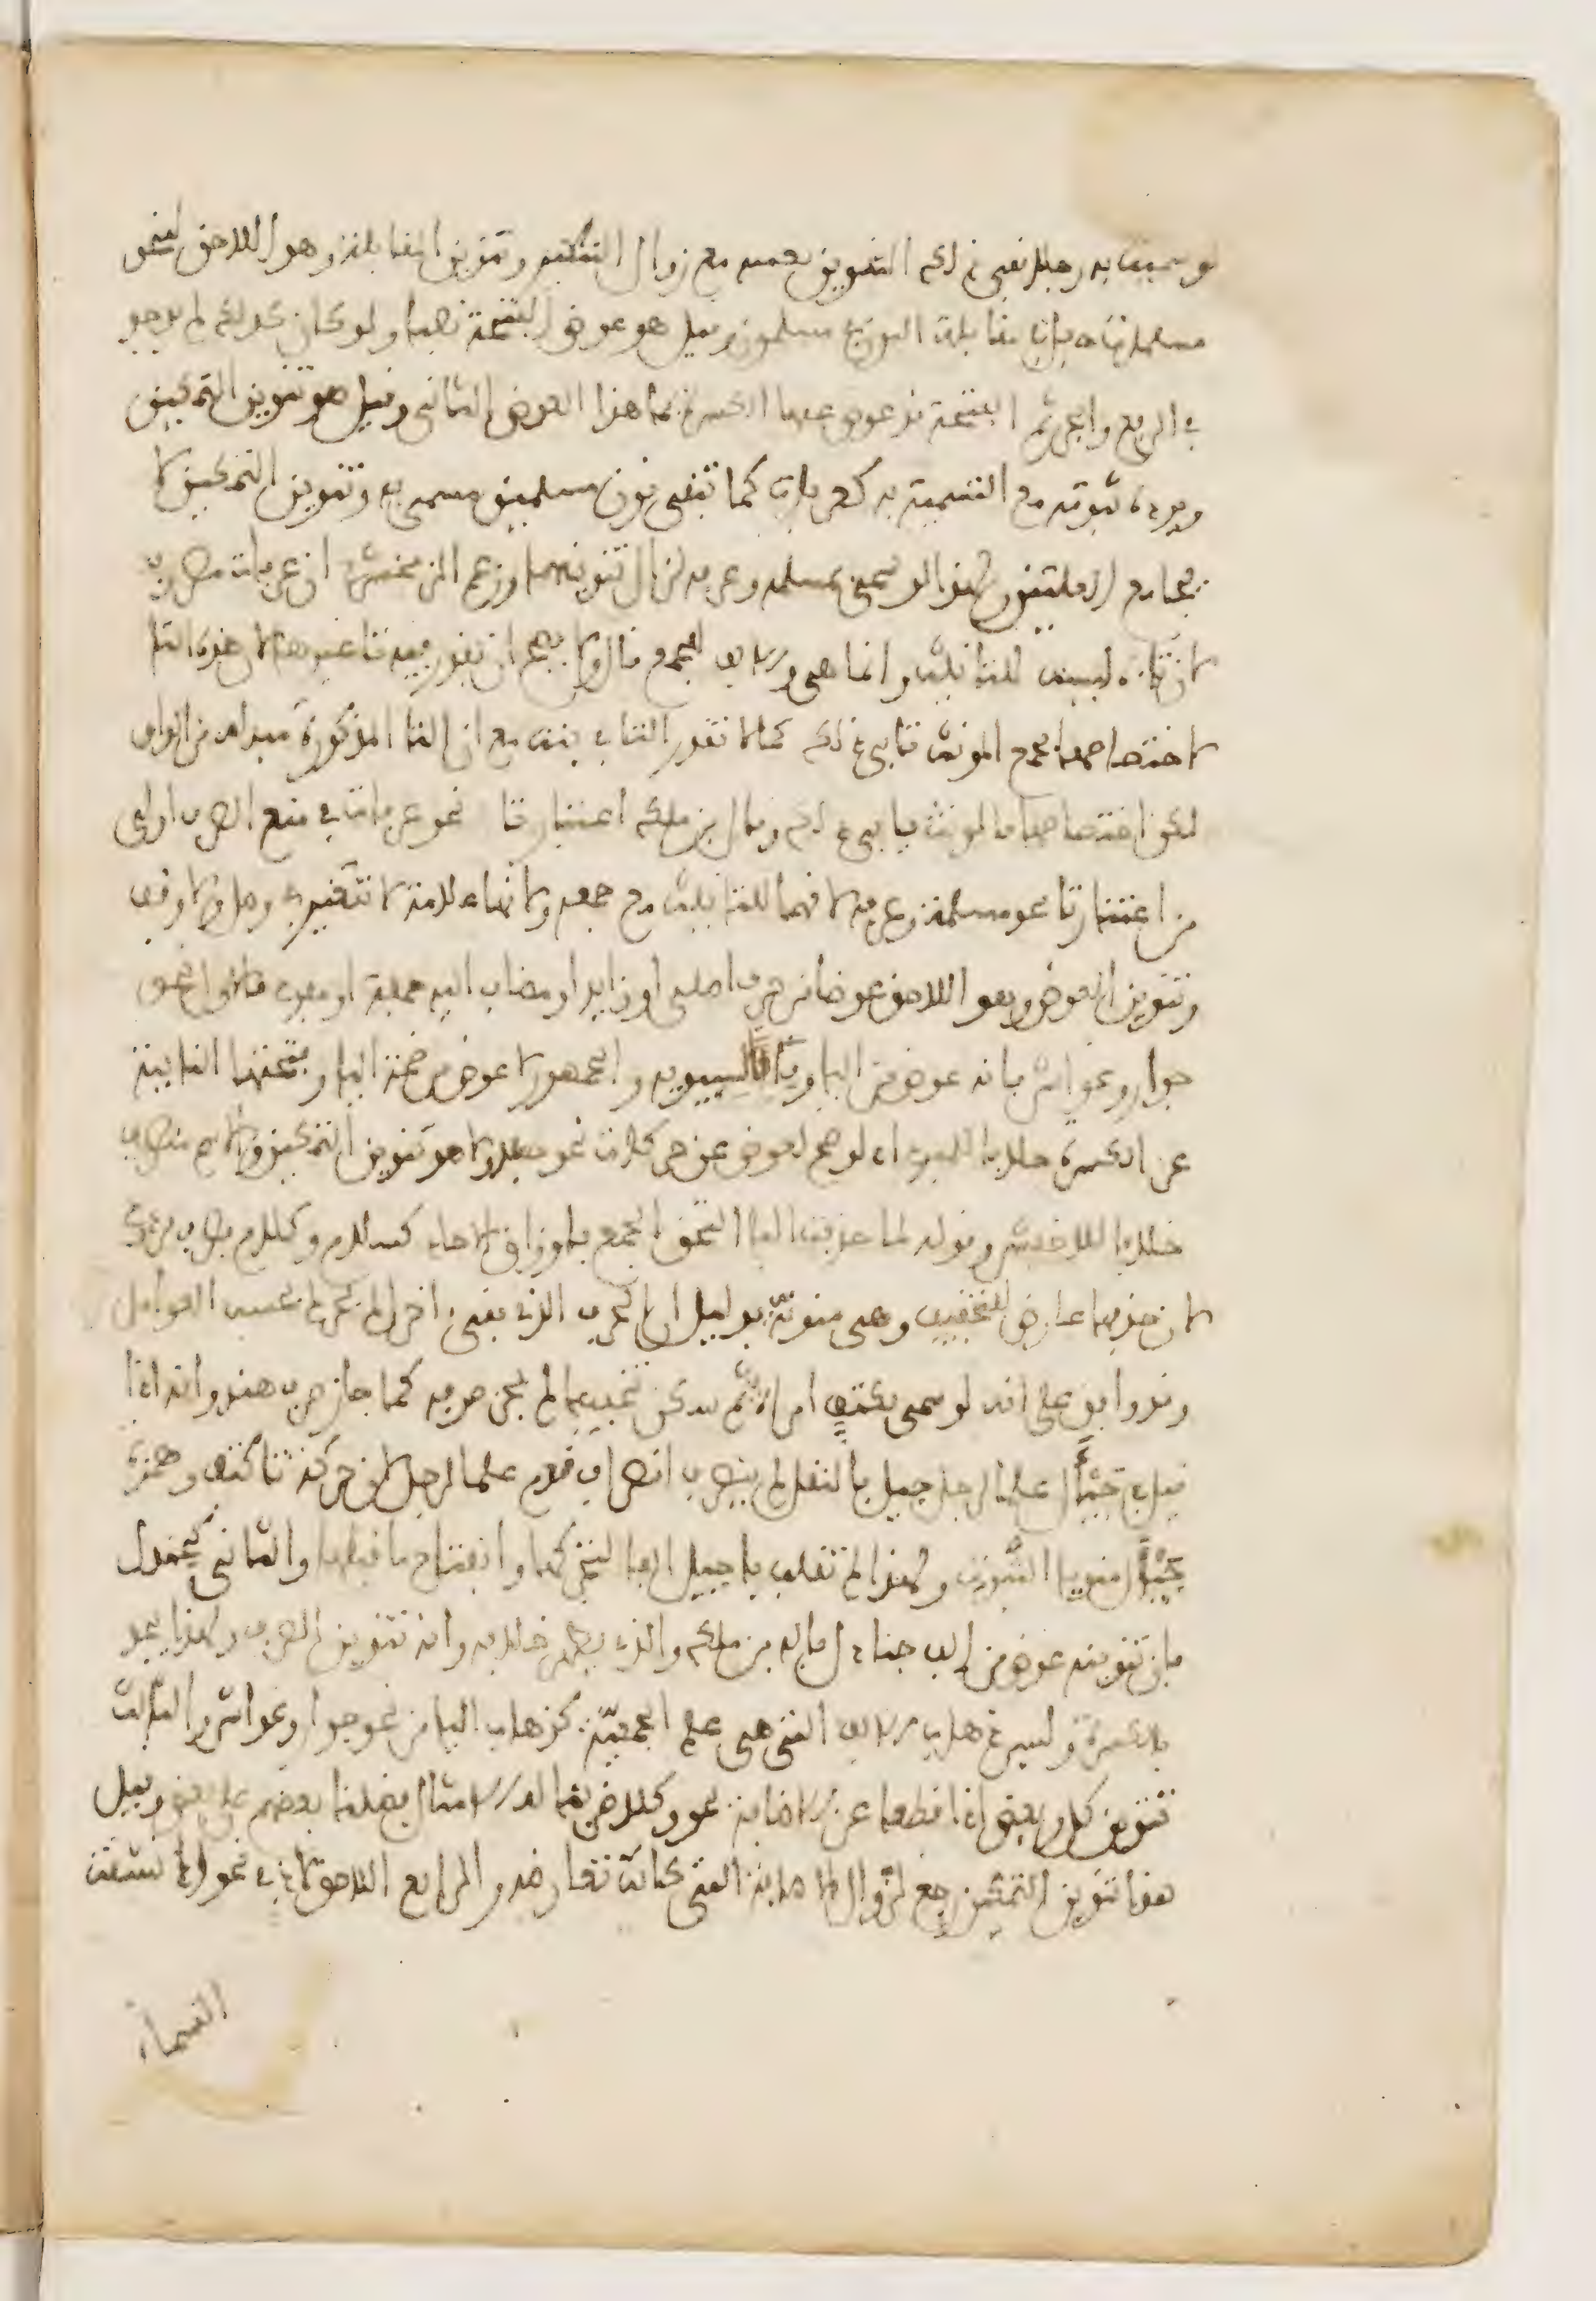 لو سميت به رجلا بقي ذلك التنوين بعينه مع زوال التنكير وتنوين المقابلة وهو اللاحق لنحو
مسلمات فإنه مقابلة النون في مسلمون وقيل هو عوض الفتحة نصبا ولو كان كذلك لم يوجد
في الرفع والجر ثم الفتحة قد عوض عنها الكسرة فما هذا العوض الثاني وقيل هو تنوين التمكين
ويرده ثبوته مع التسمية به كعرفات كما تبقى نون مسلمين مسمى به وتنوين التمكين لا
يجامع العلتين ولهذا لو سمي بمسلمة وعرفة زال تنوينهما وزعم الزمخشري ان عرفات مصروف
لان تاءه ليست للتانيث وانما هي والالف للجمع قال ولا يصح ان يقدر فيه تا غيرها لان هذه التا
لاختصاصها بجمع المونث تابى ذلك كما لا تقدر التا في بنت مع ان التا المذكورة مبدلة من الواو
لكن اختصاصها بالمونث يابى ذلك وقال بن ملك اعتبار تا نحو عرفات في منع الصرف اولى
من اعتبار تا نحو مسلمة وعرفة لانها للتانيث مع جمعية ولانها علامة لا تتغير في وصل ولا وقف
وتنوين العوض وهو اللاحق عوضا من حرف اصلي او زايد او مضاف اليه جملة او مفرد فالاول نحو
جوار وغواش فانه عوض من اليا وفاقا لسيبويه والجمهور لا عوض من ضمة اليا وفتحتها النايبة
عن الكسرة خلافا للمبرد اذ لو صح لعوض عن حركات نحو حبلى ولا هو تنوين التمكين والاسم منصرف
خلافا للاخفش وقوله لما حذفت اليا التحق الجمع باوزان الاحاد كسلام وكلام فصرف مردود
لان حذفها عارض للتخفيف وهي منوية بدليل ان الحرف الذي بقي اخرا لم يحرك بحسب العوامل
وقد وافق على انه لو سمي بكتف امراة ثم سكن تخفيفا لم يجز صرفه كما جاز صرف هند وانه اذا
قيل في جيئل علما لرجل جيل بالنقل لم ينصرف انصراف قدم علما لرجل لان حركة تا كتف وهمزة
جيئل منويا الثبوت ولهذا لم تقلب يا جيل الفا لتحركها وانفتاح ما قبلها والثاني كجندل
فان تنوينه عوض من الف جنادل قاله بن ملك والذي يظهر خلافه وانه تنوين الصرف ولهذا يجر
بالكسرة وليس ذهاب الالف التي هي علم الجمعية كذهاب اليا من نحو جوار وغواش والثالث
تنوين كل وبعض اذا قطعا عن الاضافة نحو وكلا ضربنا له الامثال فضلنا بعضهم على بعض وقيل
هذا تنوين التمكين رجع لزوال الاضافة التي كانت تعارضه والرابع اللاحق لاذ في نحو وانشقت
السماء